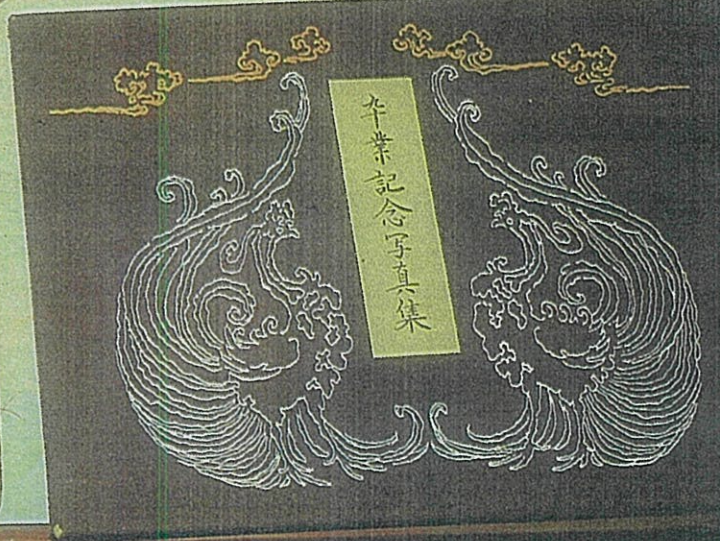 卒業記念写真集